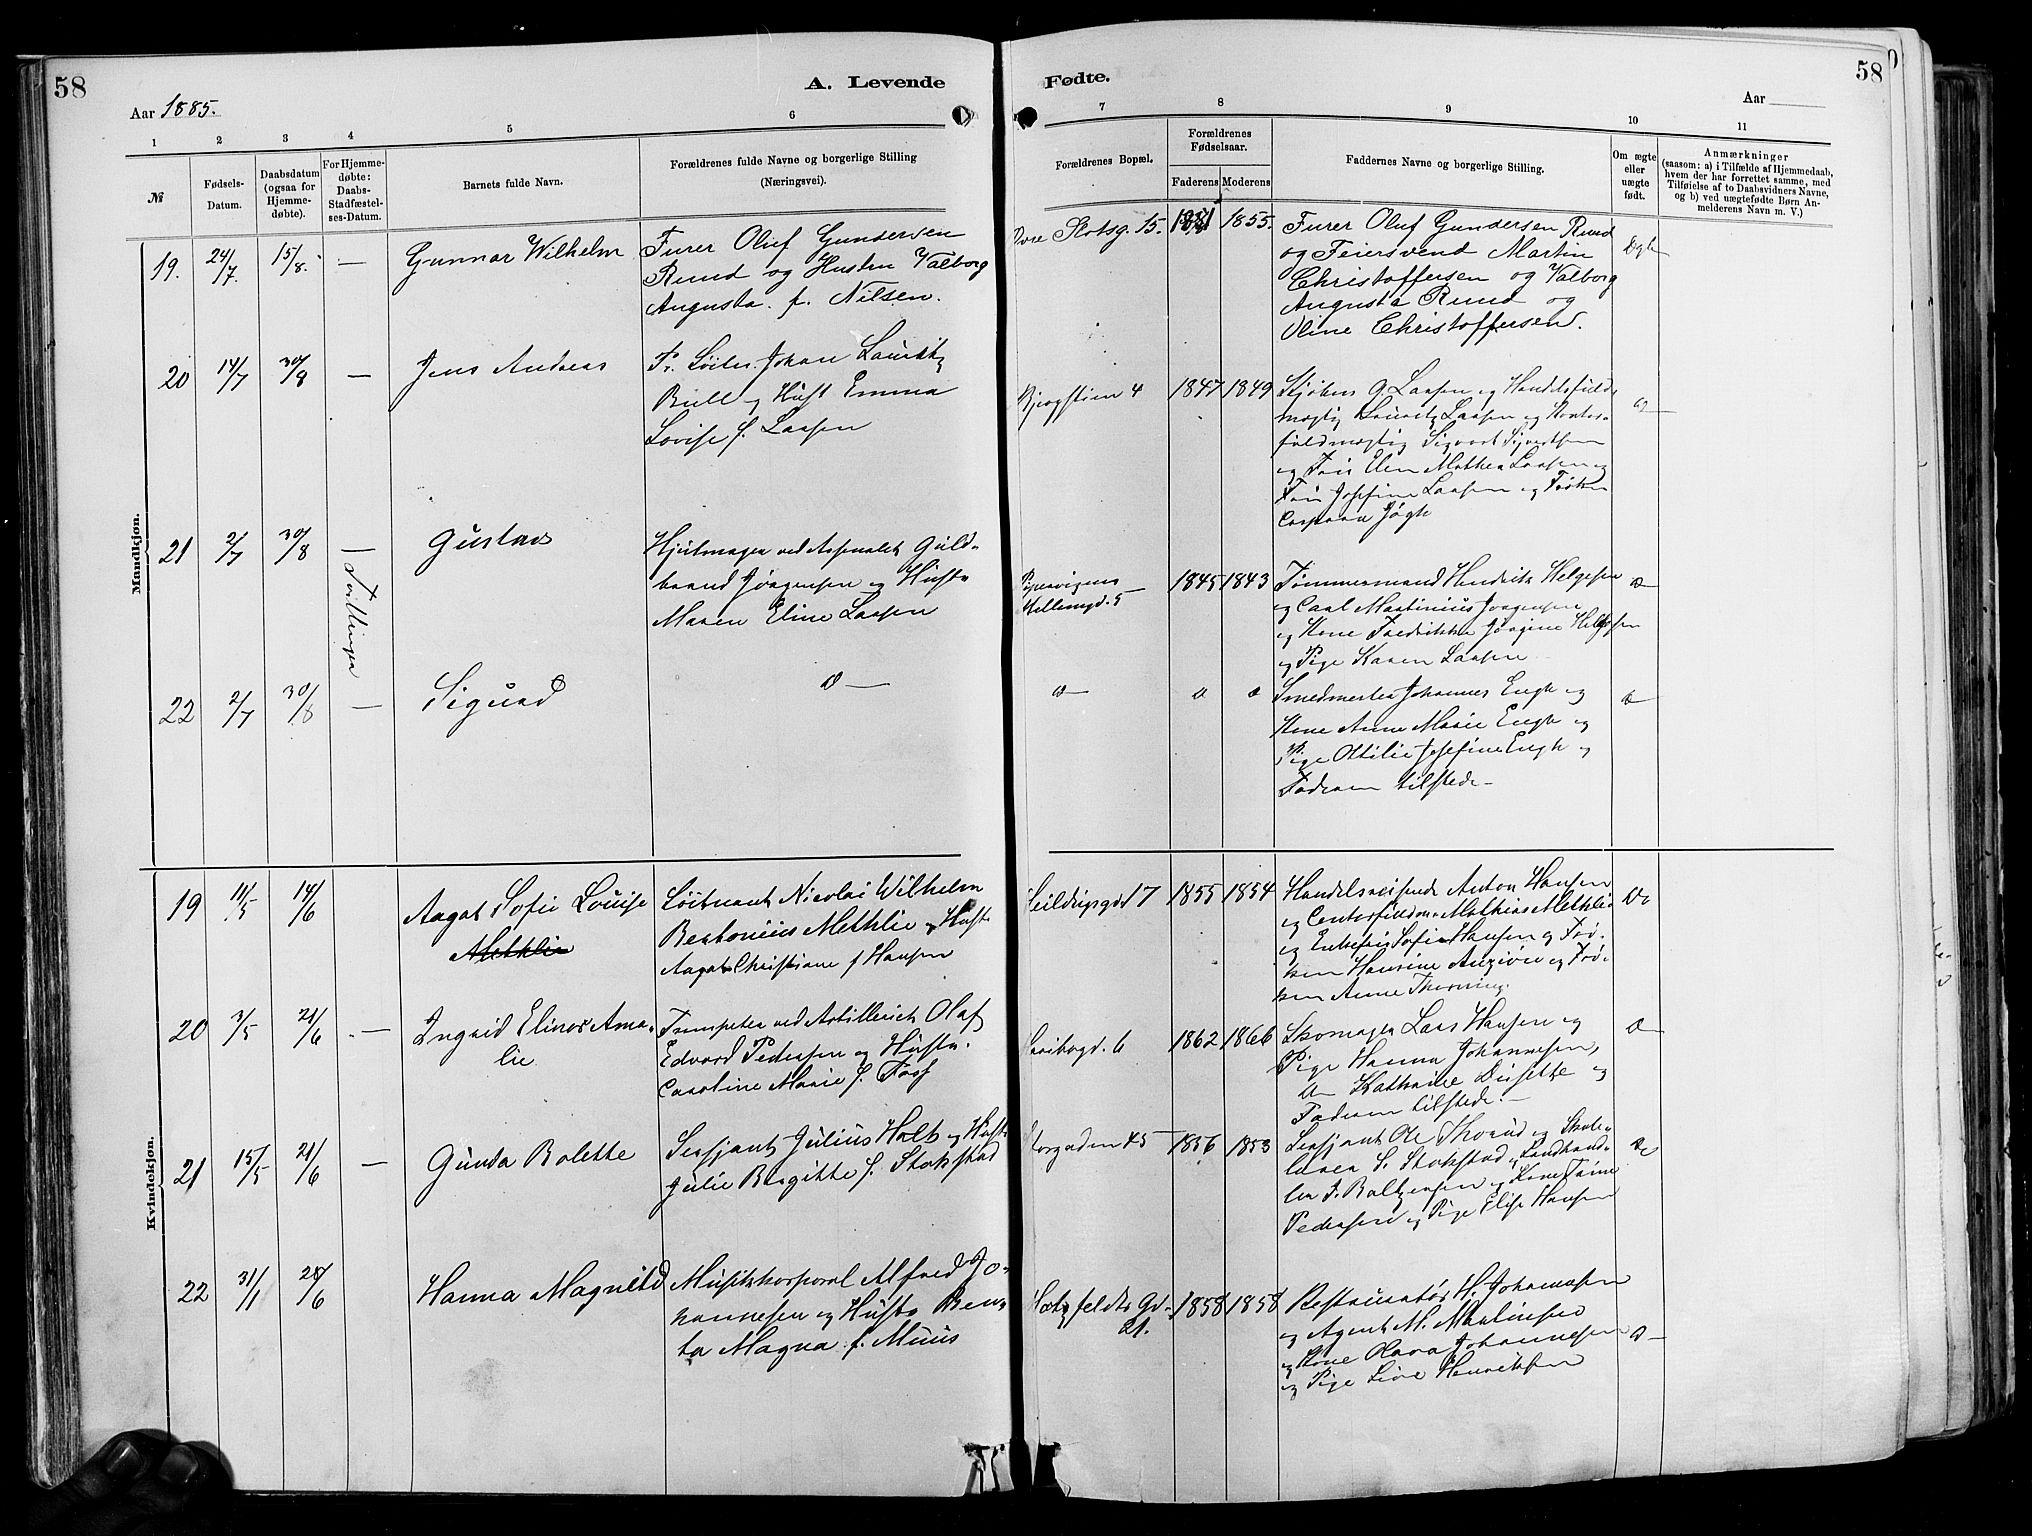 58
A. Levende
Fødte.
58
Aar 1885.
Aar
1 2 3 4 5 6 7 8 9 10 11
№
Fødsels-
Datum.
Daabsdatum
(ogsaa for
Hjemme-
døbte).
For Hjemme-
døbte:
Daabs-
Stadfæstel-
ses-Datum.
Barnets fulde Navn.
Forældrenes fulde Navne og borgerlige Stilling
(Næringsvei).
Forældrenes Bopæl.
Forældrenes
Fødselsaar.
Faderens Moderens
Faddernes Navne og borgerlige Stilling.
Om ægte
eller
uægte
født.
Anmærkninger
(saasom: a) i Tilfælde af Hjemmedaab,
hvem der har forrettet samme, med
Tilføielse af to Daabsvidners Navne,
og b) ved uægtefødte Børn An-
melderens Navn m. V.)
Mandkjøn.
19. 24/7. 15/8. — Gunnar Wilhelm
Furer Oluf Gundersen
Ruud og Hustru Valborg
Augusta f. Nilsen.
Slotsg. 15. 1855.
Furer Oluf Gundersen Ruud
og Feiersvend Martin
Christoffersen og Valborg
Augusta Ruud og
Oline Christoffersen.
20 14/7 30/9 — Jens Andreas
Johan Lauritz
Bull og Hust Emma
Lovise f. Larsen
4 1847 1849
G. Larsen og Handelsfuld-
mægtig Lauritz Larsen og Kontor-
fuldmægtig Sigvart Sivertsen
og Frue Elen Mathea Larsen og
Frue Josefine Larsen og Frøken
21 2/7 30/8 — Gustav
Tvillinger
Hjulmager ved Arsenalet Guld-
brand Jørgensen og Hustru
Maren Eline Larsen
Pipervigens
Mellemgd. 5 1845 1843
Tømmermand Hendrik Helgesen
og Carl Martinius Jørgensen
og Kone Fredrikke Jørgine Helgesen
og Pige Karen Larsen
22 2/7 30/8 — Sigurd
Smedmester Johannes Engh og
Kone Anne Marie Engh og
Pige Ottilie Josefine Engh og
Faderen tilstede —
Kvindekjøn.
19 11/5 14/6 Aagat Sofie Louise
Methlie
Løitnant Nicolai Wilhelm
Methlie og Hust
Aagat Christiane f Hansen
17 1855 1854
Handelsreisende Anton Hansen
og Mathias Methlie
og Enkefru Sofie Hansen og Frø-
ken Hansine og Frø-
ken Anne Thorning.
20 3/5 21/6 — Ingrid Elinor Ama-
lie
Trumpeter ved Artilleriet Olaf
Edvard Pedersen og Hustru
Caroline Marie f. Foss
6 1862 1866
Skomager Lars Hansen og
Pige Hanna Johannesen,
Kathrine og
Faderen tilstede. —
21 15/5 21/6 — Gunda Bolette
Sersjant Julius Holt og Hust
Julie Birgitte f. Stokstad
Storgaden 45 1856 1853
Sersjant Ole og Skole-
lærer S. Stokstad og Landhand-
ler J. Baltzersen og Kone
Pedersen og Pige Elise Hansen
22 31/1 28/6 Hanna Magnild
Musikkorporal Alfred Jo-
hannesen og Hustru Ben-
ta Magna f. Muus
Hatzfeldts Gd.
21. 1858 1858
Restauratør H. Johannesen
og Agent M. Martinsen
og Kone Olava Johannesen
og Pige Live Henriksen